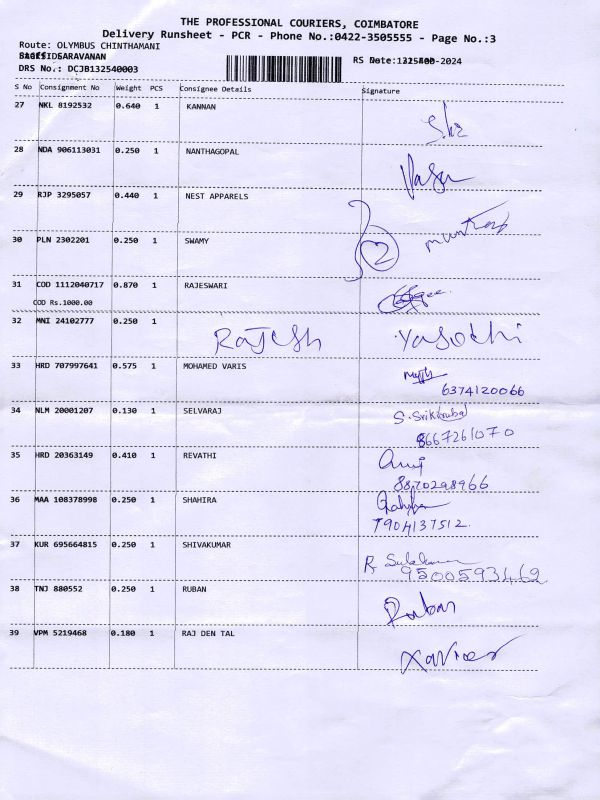 THE PROFESSIONAL COURIERS, COIMBATORE
Delivery Runsheet - PCR - Phone No.:0422-3505555 - Page No.:3
Route: OLYMBUS CHINTHAMANI
SARAVANAN
DRS No.: DCJB132540003
RS
S No Consignment No Weight PCS Consignee Details Signature
27 NKL 8192532 0.640 1 KANNAN
28 NDA 906113031 0.250 1 NANTHAGOPAL
29 RJP 3295057 0.440 1 NEST APPARELS
30 PLN 2302201 0.250 1 SWAMY
31 COD 1112040717 0.870 1 RAJESWARI
COD Rs.1000.00
32 MNI 24102777 0.250 1 Rajesh Yasothi
33 HRD 707997641 0.575 1 MOHAMED VARIS
6374120066
34 NLM 20001207 0.130 1 SELVARAJ
8667261070
35 HRD 20363149 0.410 1 REVATHI
8870298966
36 MAA 108378998 0.250 1 SHAHIRA
7904137512.
37 KUR 695664815 0.250 1 SHIVAKUMAR
9500593462
38 TNJ 880552 0.250 1 RUBAN Ruban
39 VPM 5219468 0.180 1 RAJ DEN TAL Xavier